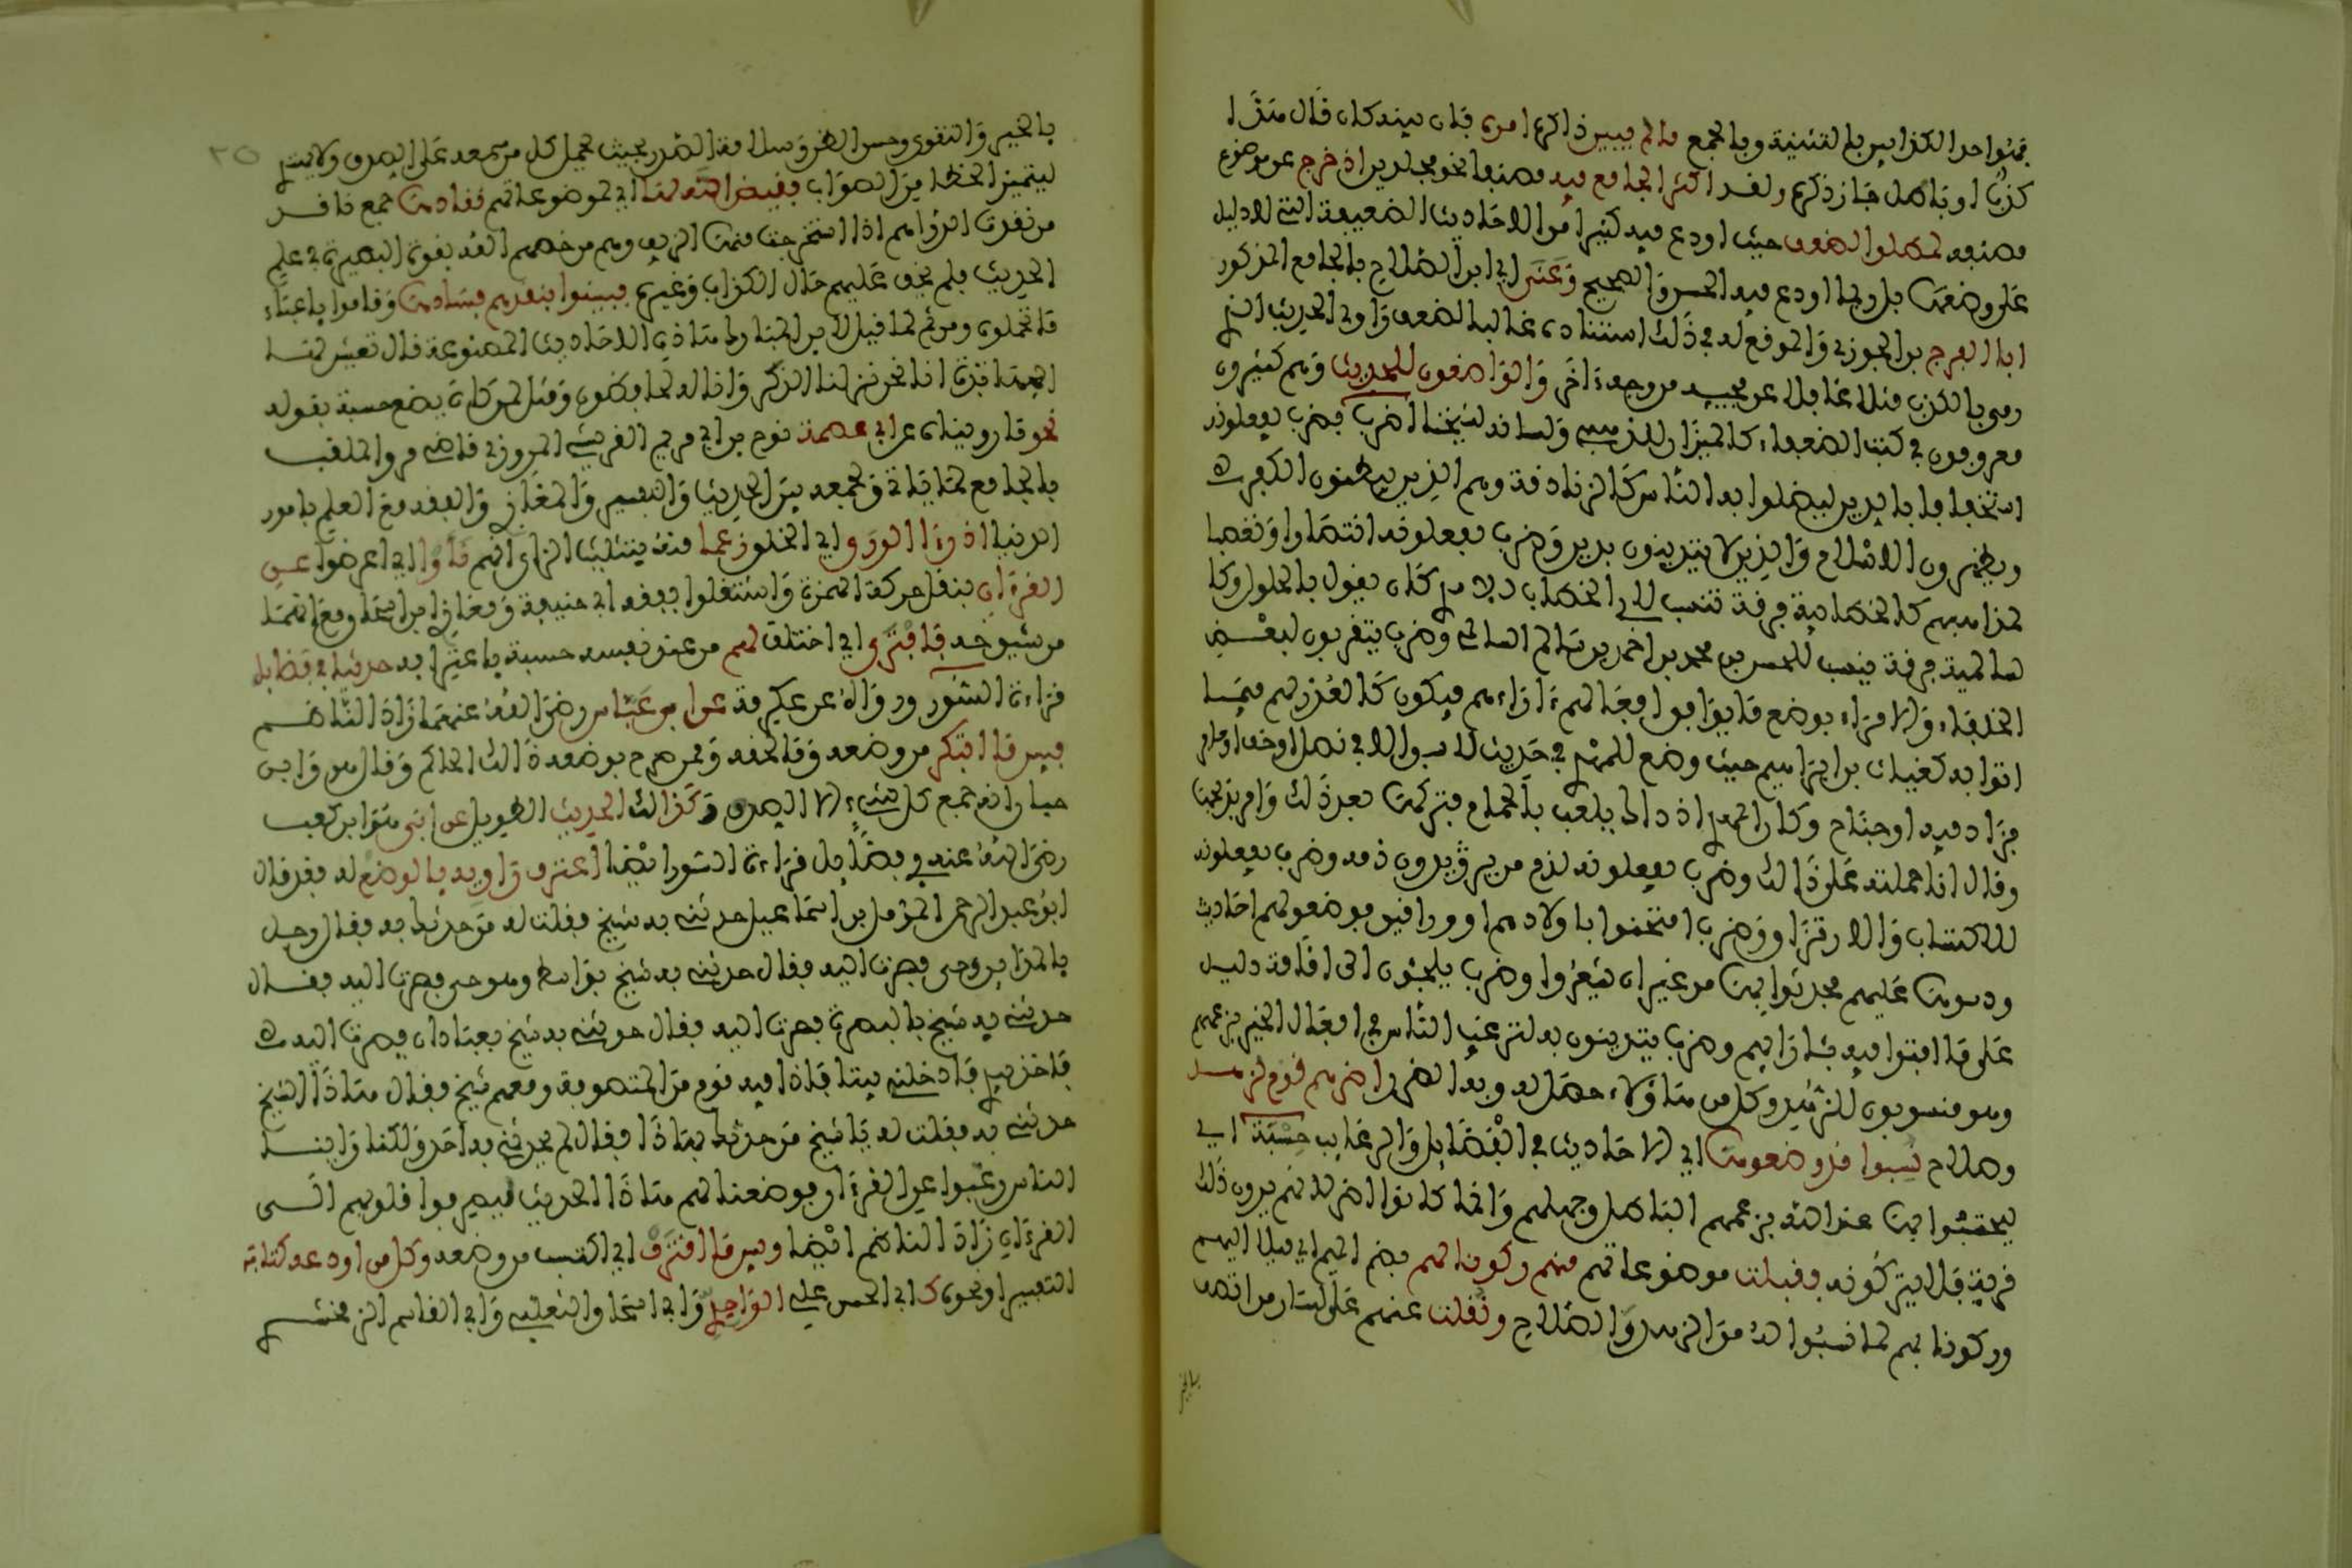 فهو احد الكذابين بالتثنية وبالجمع ما لم يبين ذاكره امره فان بينه كان قال هذا
كذب او باطل جاز ذكره ولقد اكثر الجامع فيه مصنفا نحو مجلدين اذ خرج عن موضوع
مصنفه لمطلق الضعف حيث اودع فيه كثيرا من الاحاديث الضعيفة التي لا دليل
على وضعها بل ربما اودع فيه الحسن والصحيح وعنى اي ابن الصلاح بالجامع المذكور
ابا الفرج بن الجوزي والموقع له في ذلك استناده غالبا لضعف راوي الحديث الذي
رمي بالكذب مثلا غافلا عن مجيئه من وجه ءاخر والواضعون للحديث وهم كثيرون
معروفون في كتب الضعفاء كالميزان للذهبي ولسانه لشيخنا اضرب فضرب يفعلونه
استخفافا بالدين ليضلوا به الناس كالزنادقة وهم الذين يبطنون الكفر
ويظهرون الاسلام والذين لا يتدينون بدين وضرب يفعلونه انتصارا وتعصبا
لمذاهبهم كالخطابية فرقة تنسب لابي الخطاب الاسدي كان يقول بالحلول وكا
لسالمية فرقة ينسب للحسن بن محمد بن احمد بن سالم السالمي وضرب يتقربون لبعض
الخلفاء والامراء بوضع ما يوافق فعالهم وءاراءهم فيكون كالعذر لهم فيما
اتوا به كغياث بن ابراهيم حيث وضع للمهدي في حديث لا سبق الا في نصل او خف او حافر
فزاد فيه او جناح وكان المهدي اذ ذاك يلعب بالحمام فتركها بعد ذلك وامر بذبحها
وقال انا حملته على ذلك وضرب يفعلونه لذم من يريدون ذمه وضرب يفعلونه
للاكتساب والارتزاق وضرب امتحنوا باولادهم او وراقين فوضعوا لهم احاديث
ودسوها عليهم فحدثوا بها من غير ان يشعروا وضرب يلجئون الى اقامة دليل
على ما افتوا فيه بئارايهم وضرب يتدينون به لترغيب الناس في افعال الخير بزعمهم
وهم منسوبون للزهد وكل من هاؤلاء حصل له وبه الضرر اضرهم قوم لزهد
وصلاح نسبوا قد وضعوها اي الاحاديث في الفضايل والرغايب حسبة اي
ليحتسبوا بها عند الله بزعمهم الباطل وجهلهم وانما كانوا اضر لانهم يرون ذلك
قربة فلا يتركونه فقبلت موضوعاتهم منهم ركونا لهم بضم الميم اي ميلا اليهم
وركونا بهم لما نسبوا له من الزهد والصلاح ونقلت عنهم على لسان من اتصف
بالخير
٢٥
بالخير والتقوى وحسن الظن وسلامة الصدر بحيث يحمل كل من سمعه على الصدق ولا يهتدي
لتمييز الخطا من الصواب فقيض الله لها اي لموضوعاتهم نقادها جمع ناقد
من نقدت الدراهم اذا استخرجت منها الزيف وهم من خصهم الله بقوة البصيرة في علم
الحديث فلم يخف عليهم حال الكذاب وغيره فبينوا بنقدهم فسادها وقاموا باعباء
ما تحملوه ومن ثم لما قيل لابن المبارك هاذه الاحاديث المصنوعة قال تعيش لها
الجهابذة انا نحن نزلنا الذكر وانا له لحافظون ومثل لمن كان يضع حسبة بقوله
نحو ما رويناه عن ابي عصمة نوح بن ابي مريم القرشي المروزي قاضي مرو الملقب
بالجامع لما ياتي ولجمعه بين الحديث والتفسير والمغازي والفقه مع العلم بامور
الدنيا اذ راى الورى اي الخلق زعما منه بتثليث الزاي انهم ناوا اي اعرضوا عن
القرءان بنقل حركة الهمزة واشتغلوا بفقه ابي حنيفة ومغازي ابن اسحاق مع انهما
من شيوخه فافترى اي اختلق لهم من عند نفسه حسبة باعترافه حديثا في فضايل
قراءة السور ورواه عن عكرمة عن ابن عباس رضي الله عنهما زاد الناظم
فبيس ما ابتكر من وضعه وما لخفه وممن صرح بوضعه ذلك الحاكم وقال هو وابن
حبان انه جمع كل شيء الا الصدق وكذلك الحديث الطويل عن ابي هو ابن كعب
رضي الله عنه في فضايل قراءة السور ايضا اعترف راويه بالوضع له فقد قال
ابو عبد الرحمن المؤمل بن اسماعيل حدثني به شيخ فقلت له من حدثك به فقال رجل
بالمداين وهو حي فصرت اليه فقال حدثني به شيخ بواسط وهو حي فصرت اليه فقال
حدثني به شيخ بالبصرة فصرت اليه فقال حدثني به شيخ بعبادان فصرت اليه
فاخذ بيدي فادخلني بيتا فاذا فيه قوم من المتصوفة ومعهم شيخ فقال هاذا الشيخ
حدثني به فقلت له يا شيخ من حدثك بهاذا فقال لم يحدثني به احد ولكنا راينا
الناس رغبوا عن القرءان فوضعنا لهم هاذا الحديث ليصرفوا قلوبهم الى
القرءان زاد الناظم ايضا وبيس ما اقترف اي اكتسب من وضعه وكل من اودعه كتابه
التفسير او نحوه كابي الحسن علي الواحدي وابي اسحاق الثعلبي وابي القاسم الزمخشري